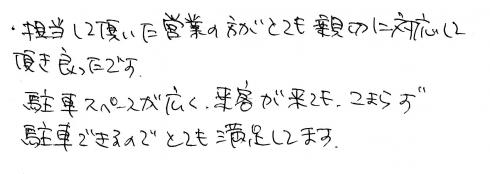 ・担当して頂いた営業の方がとても親切に対応して
頂き良ったです.
駐車スペースが広く、来客が来ても、こまらず
駐車できるのでとても満足してます.